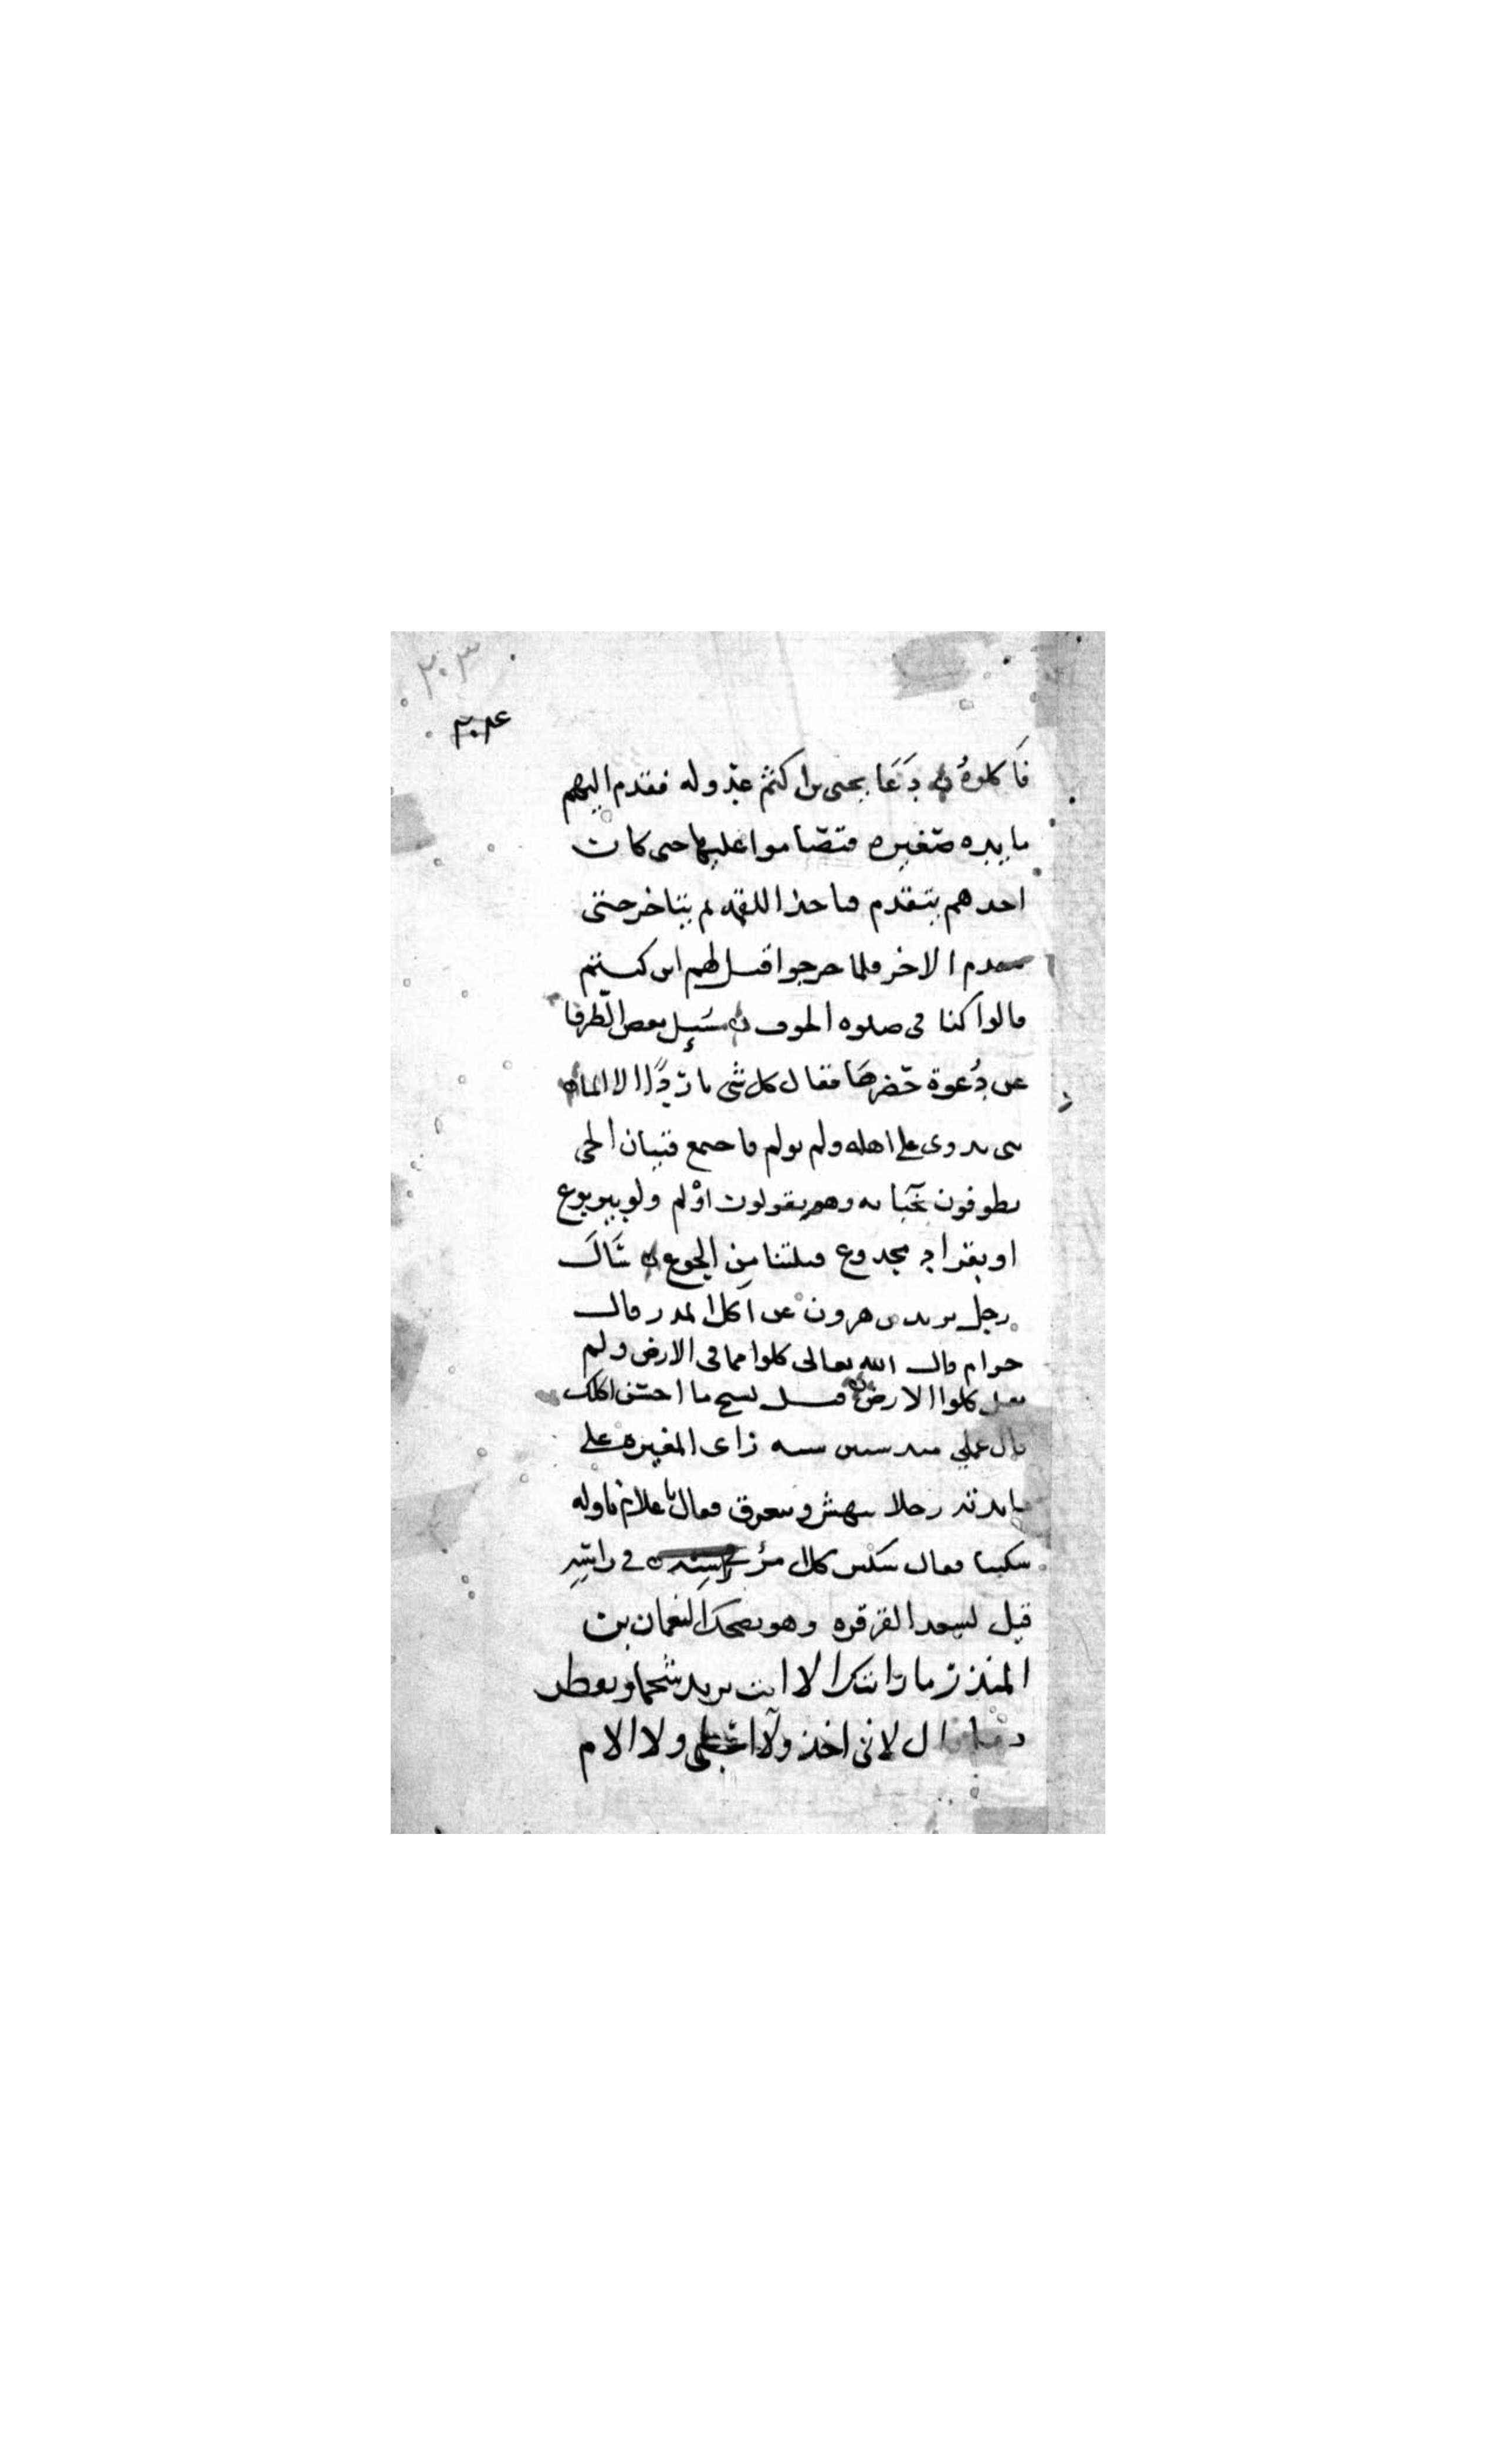 ٢٠٣
٢٠٤
فَاكلوهُ دَعَا يحيى بن اكثم عدوله فقدم اليهم
مايده صَغيره فتضاموا عليها حتى كان
احدهم يتقدم فياخذ اللقمه ثم يتاخر حتى
يتقدم الاخر فلما خرجوا قيل لهم اين كنتم
قالوا كنا فى صلوه الخوف سُيِل بعض الظرفا
عن دُعوة حَضرهَا فقال كل شى بارد الا الما
بنى بدوى على اهله ولم يولم فاجتمع فتيان الحى
يطوفون بخبايه وهم يقولون اوْلم ولو بيربوع
او بقراد مجدوع قتلتنا من الجوع سَاَلَ
رجل يزيد بن هرون عن اكل المدر فقال
حرام قال الله تعالى كلوا مما فى الارض ولم
يقل كلوا الارض قيل لشيخ ما احسن اكلك
قال عملى منذ ستين سنه راى المغيره على
مايدته رجلا ينهش ويتعرق فقال يا غلام ناوله
سكينا فقال سكين كل امرئ في راسِهِ
قيل لسعد القرقره وهو يضحك النعمان بن
المنذر ما رايناك الا وانت يزيد شحما وتقطر
دما قال لانى اخذ ولا اعطى ولا الام